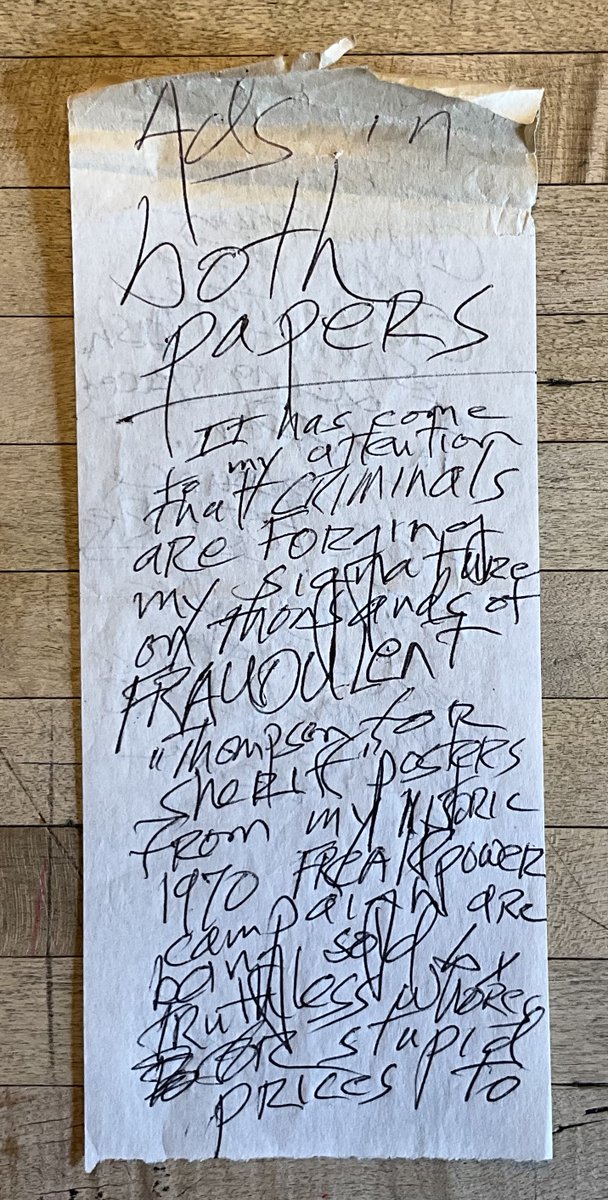 Ads in
both
papers
It has come
to my attention
that CRIMINALS
are FORGING
my signature
on thousands of
FRAUDULENT
"Thompson for
sheriff" posters
FROM my historic
1970 FREAK power
campaign are
being sold by
ruthless whores
for stupid
prices to